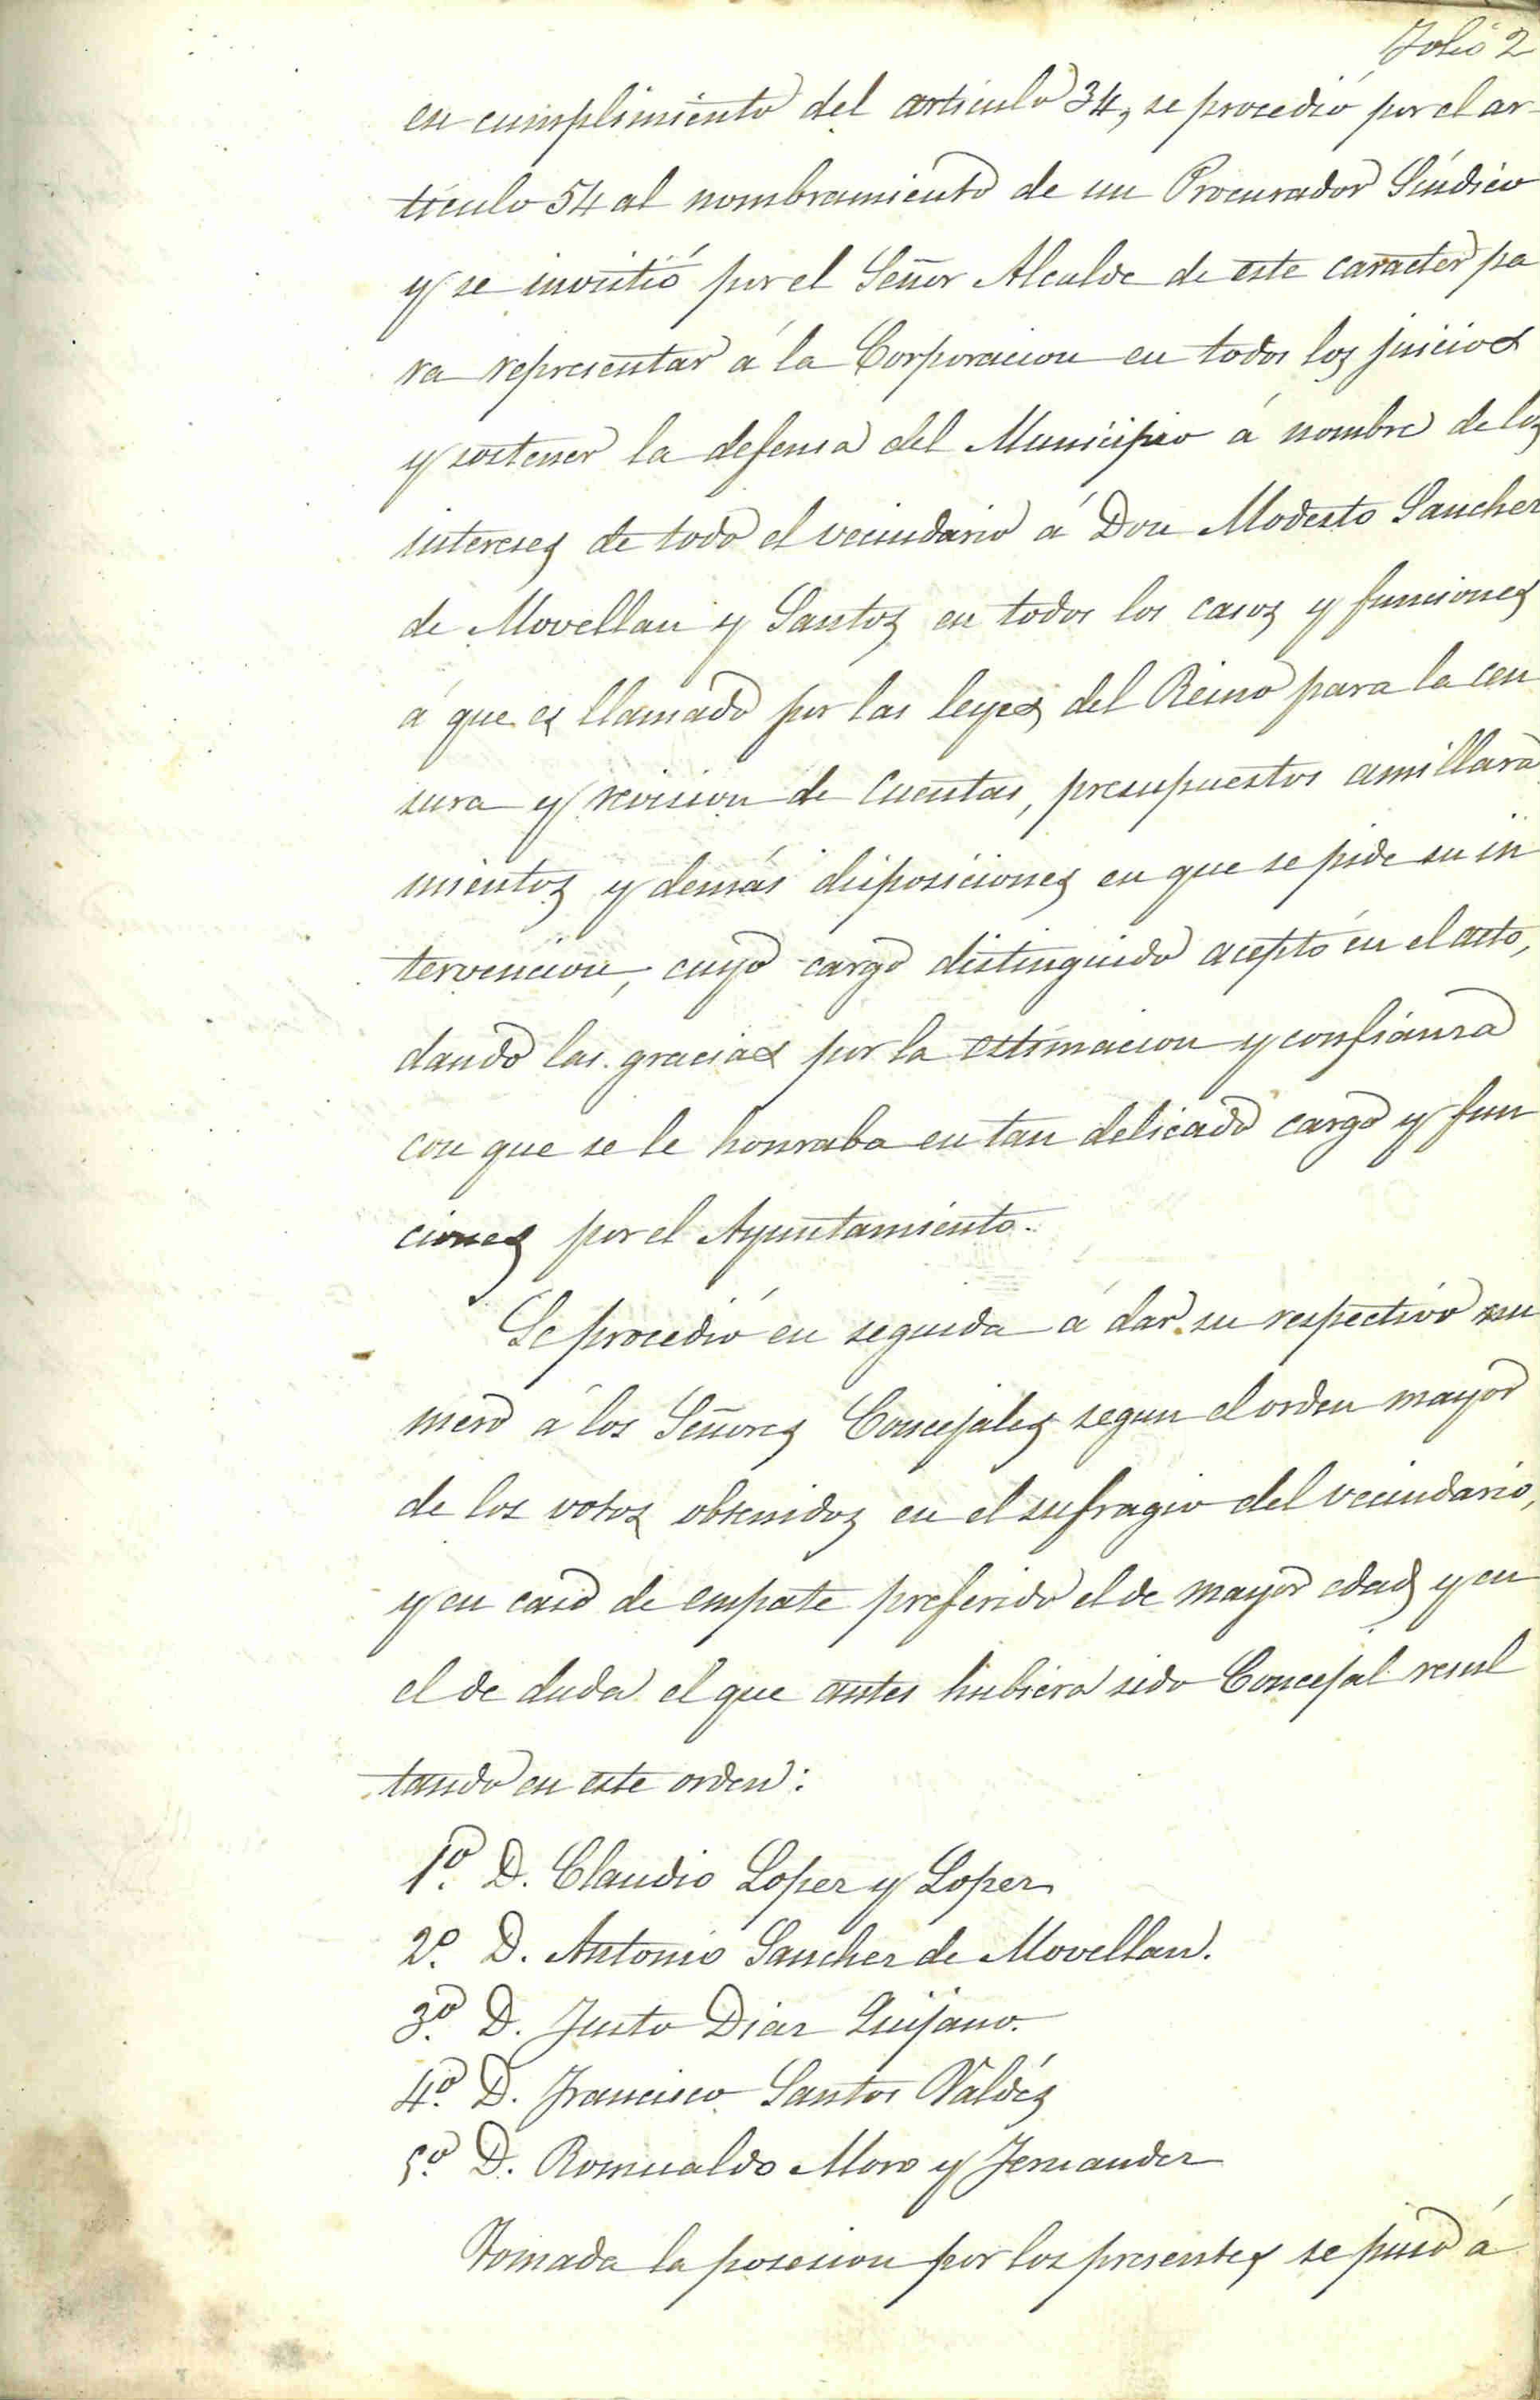 Folio 2
en cumplimiento del articulo 34, se procedió por el ar-
tículo 54 al nombramiento de un Procurador Síndico
y se invistió por el Señor Alcalde de este caracter pa
ra representar á la Corporacion en todos los juicios
y sostener la defensa del Municipio á nombre de los
intereses de todo el vecindario á Don Modesto Sanchez
de Movellan y Santos en todos los casos y funciones
á que es llamado por las leyes del Reino para la cen
sura y revision de cuentas, presupuestos amillara
mientos y demás disposiciones en que se pide su in
tervencion, cuyo cargo distinguido aceptó en el acto,
dando las gracias por la estimacion y confianza
con que se le honraba en tan delicado cargo y fun
ciones por el Ayuntamiento.
Se procedió en seguida á dar su respectivo nu
mero á los Señores Concejales segun el orden mayor
de los votos obtenidos en el sufragio del vecindario,
y en caso de empate preferido el de mayor edad y en
el de duda el que antes hubiera sido Concejal resul
tando en este orden:
1º. D. Claudio Lopez y Lopez
2º. D. Antonio Sanchez de Movellan.
3º. D. Justo Diaz Quijano.
4º. D. Francisco Santos Valdés
5º. D. Romualdo Moro y Fernandez
Tomada la posesion por los presentes se puso á